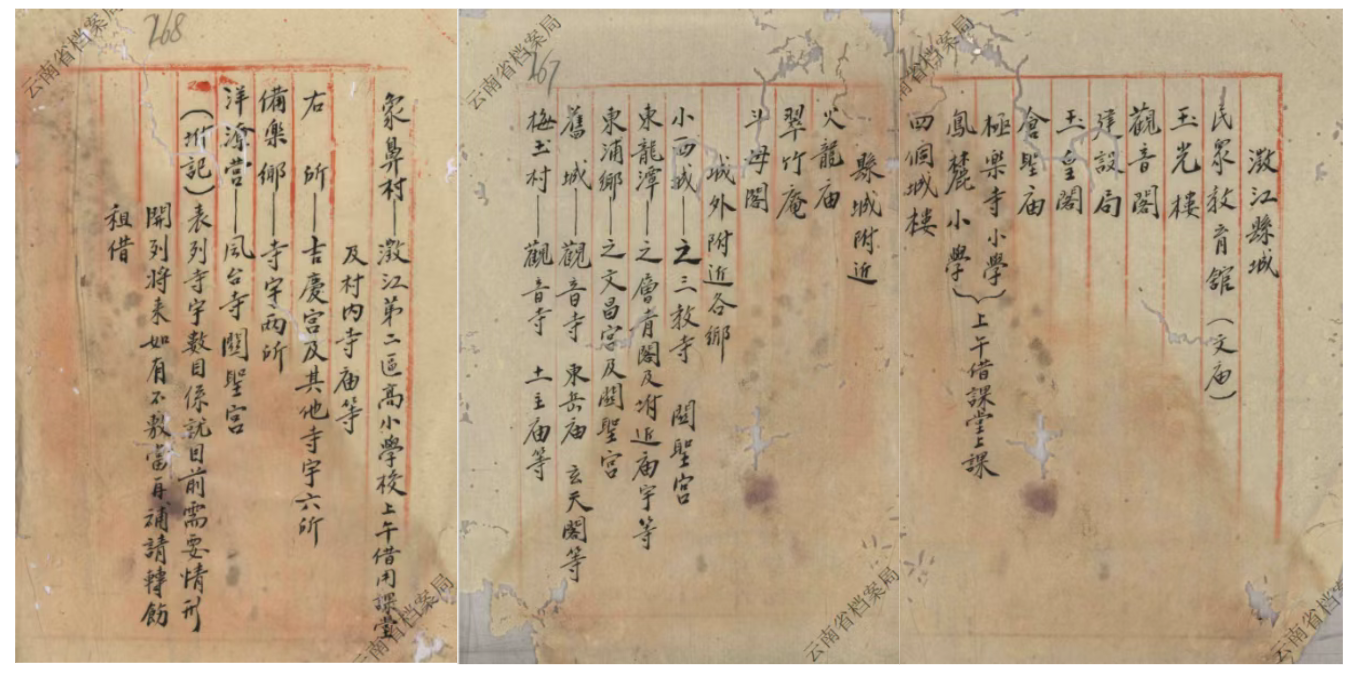 澂江縣城
民眾教育館（文庙）
玉光樓
觀音閣
建設局
玉皇閣
倉聖庙
極樂寺小學
鳳麓小學
上午借課堂上課
四個城樓
縣城附近
火龍庙
翠竹庵
斗母閣
城外附近各鄉
小西城——之三教寺 関聖宮
東龍潭——之層青閣及坿近庙宇等
東浦鄉——之文昌宮及関聖宮
舊城——觀音寺 東岳庙 玄天閣等
梅玉村——觀音寺 土主庙等
象鼻村——澂江第二區高小學校上午借用課堂
及村內寺庙等
右所——吉慶宮及其他寺宇六所
備樂鄉——寺宇兩所
洋潦营——風台寺関聖宮
（坿記）表列寺宇數目係就目前需要情形
開列將来如有不敷當再補請轉飭
租借
268
267
云南省档案局
云南省档案局
云南省档案局
云南省档案局
云南省档案局
云南省档案局